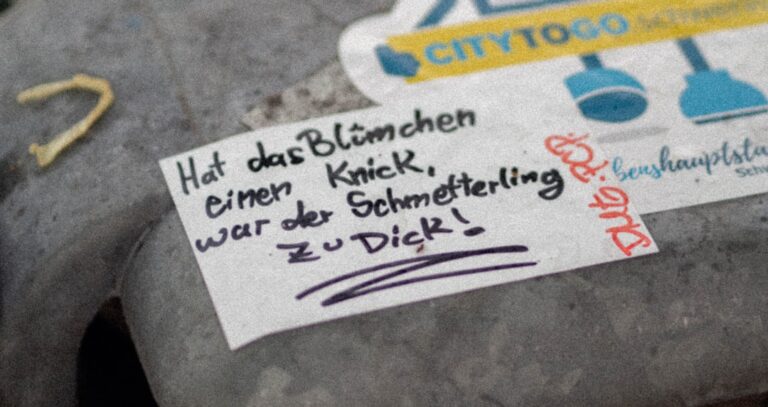 CITYTOGO
Hat das Blümchen
einen Knick,
war der Schmetterling
zu Dick!
benshauptsta
Schw